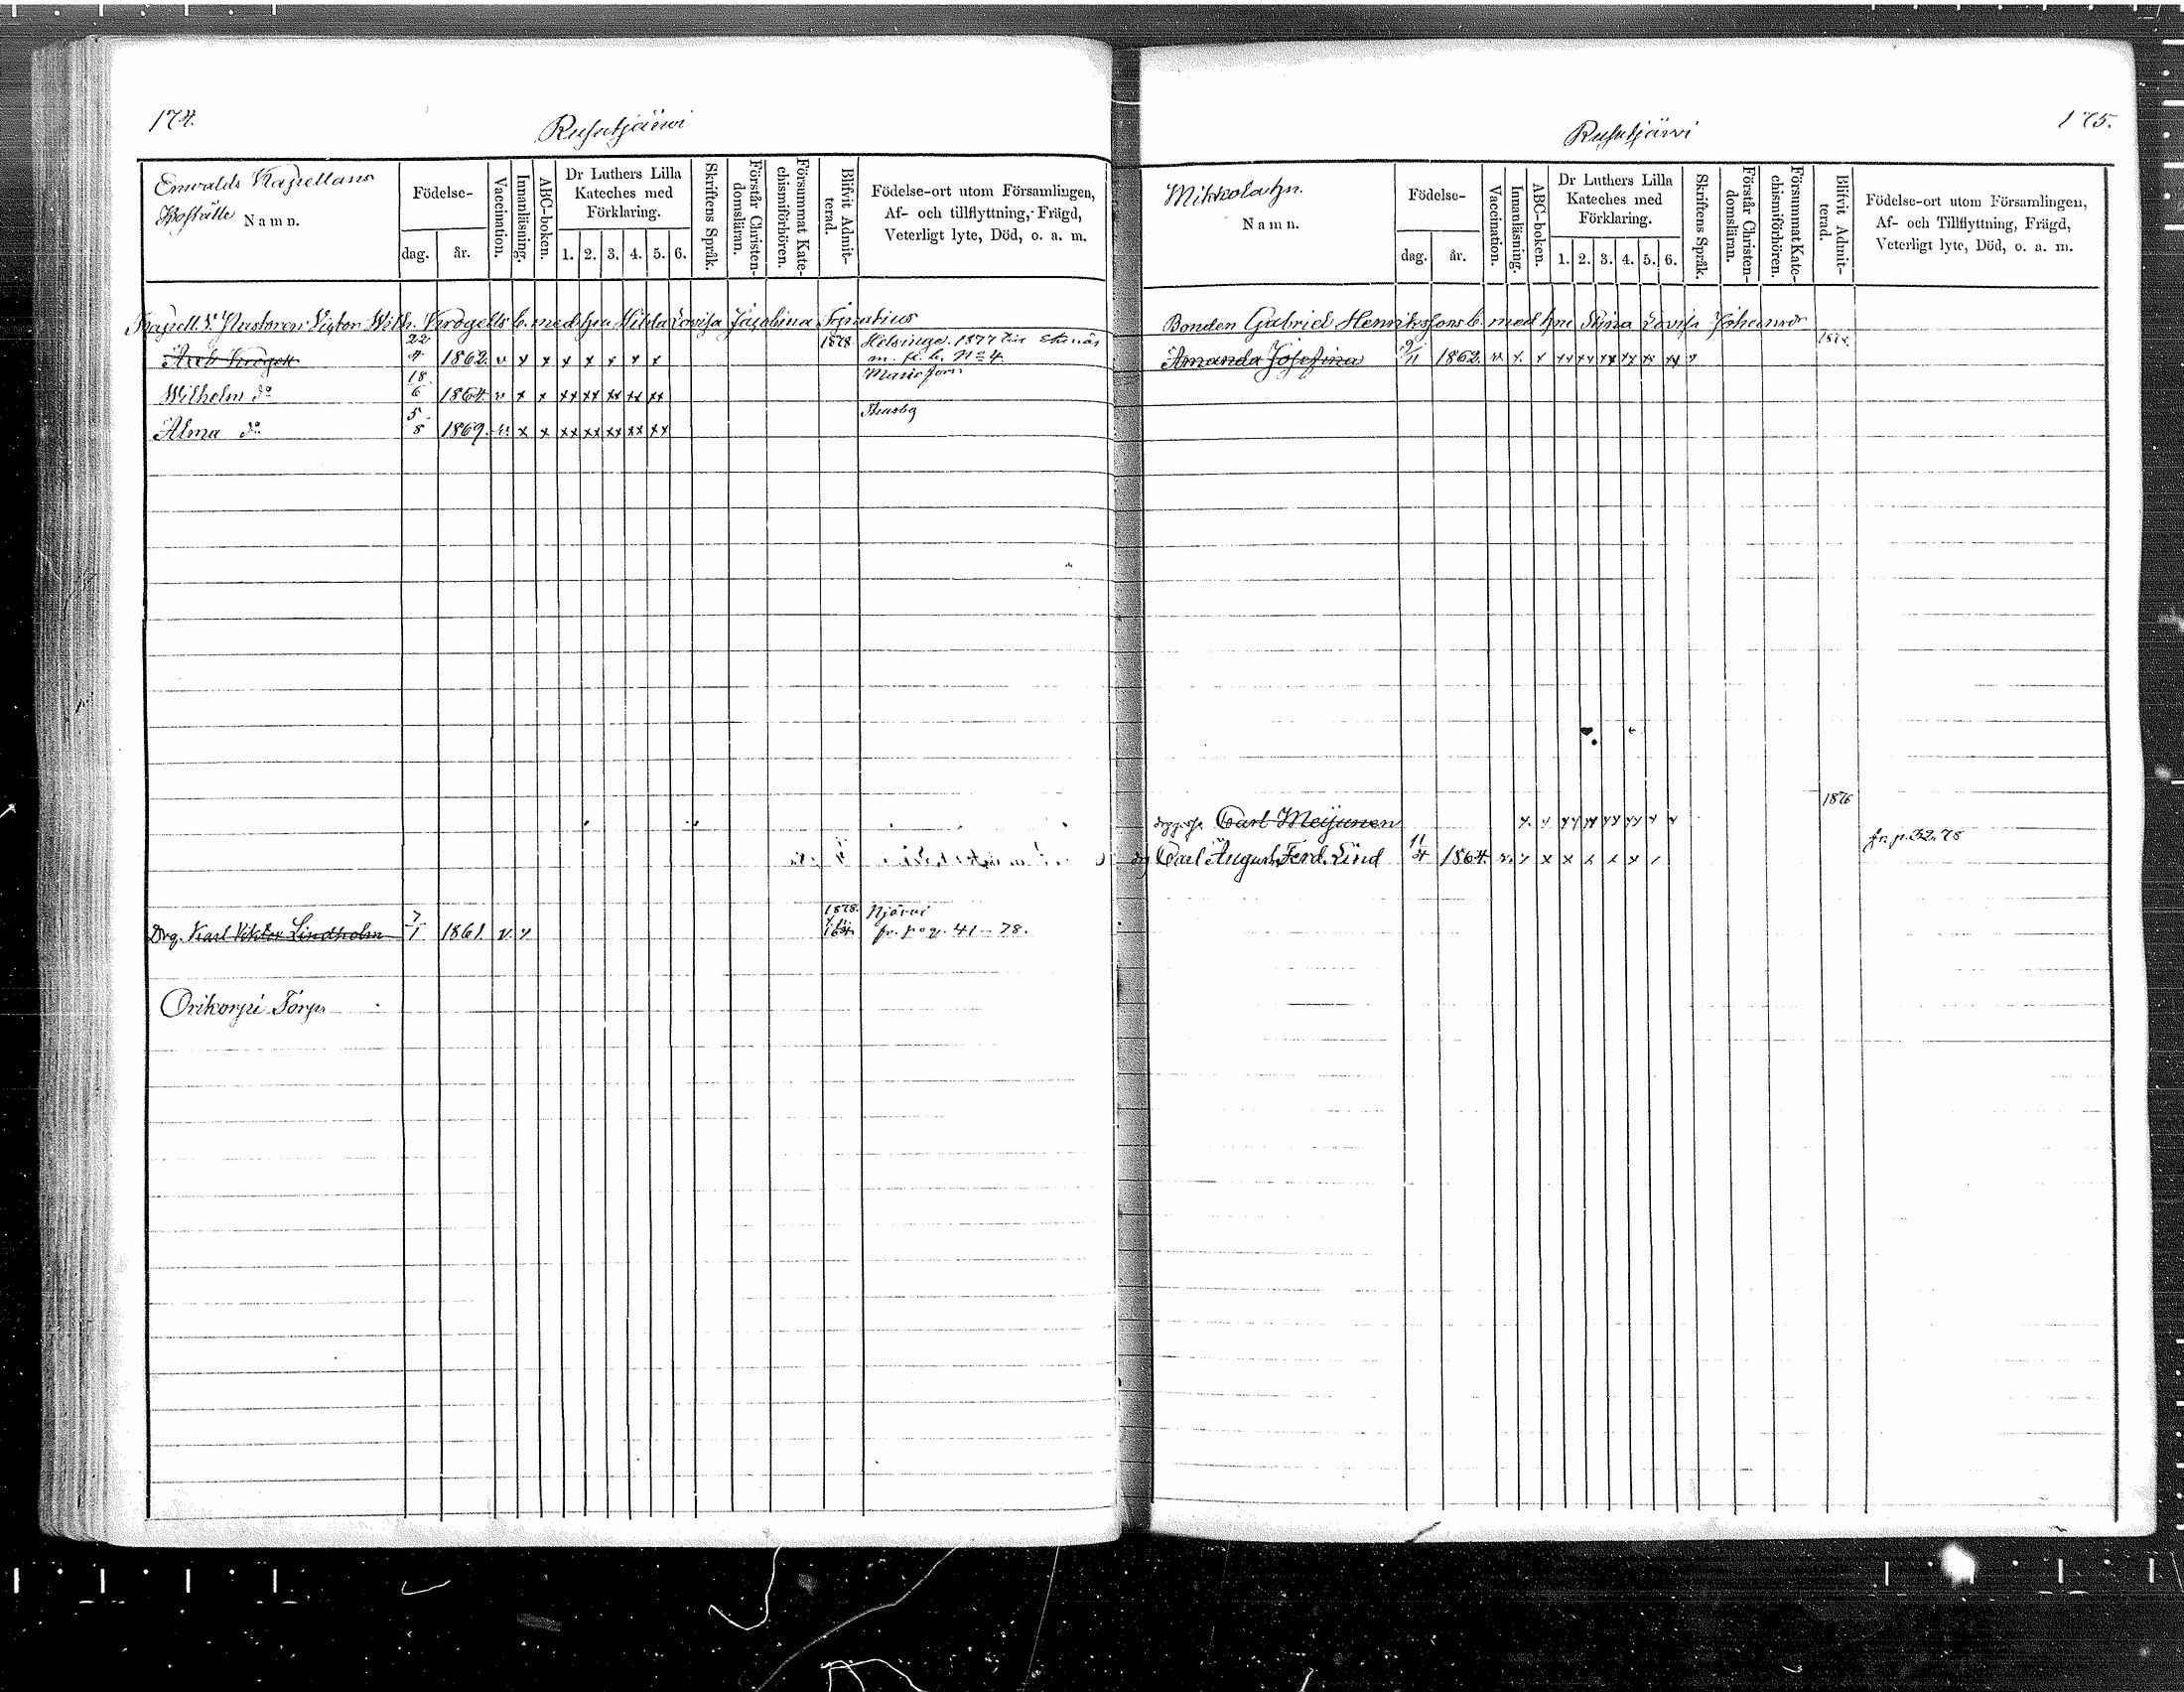 174.
Rusutjärwi
Enwalds Kapellans
Boställe
Namn.
Födelse-
dag. år.
Vaccination.
Innanläsning.
ABC-boken.
Dr Luthers Lilla
Kateches med
Förklaring.
1. 2. 3. 4. 5. 6.
Skriftens Språk.
Förstår Christen-
domsläran.
Försummat Kate-
chismiförhören.
Blifvit Admit-
terad.
Födelse-ort utom Församlingen,
Af- och tillflyttning, Frägd,
Veterligt lyte, Död, o. a. m.
Kapell. Pastoren Viktor Wilh. Krogells b. med hu Hilda Lovisa Jacobina
Axel Krogell 22/4 1862 v x x x x x x x 1878 Helsinge. 1877 Ekenäs
m. fl. b. No 4
Wilhelm do 18/6 1864 v x x xx xx xx xx xx
Alma do 5/8 1869. v. x x xx xx xx xx xx Thusby
Drg. Karl Viktor Lindholm 7/1 1861 v. x 1878. Njärvi
fr. pag. 41-78.
Orikorpi Torp
175.
Rusutjärwi
Mikkola hn.
Namn.
Födelse-
dag. år.
Vaccination.
Innanläsning.
ABC-boken.
Dr Luthers Lilla
Kateches med
Förklaring.
1. 2. 3. 4. 5. 6.
Skriftens Språk.
Förstår Christen-
domsläran.
Försummat Kate-
chismiförhören.
Blifvit Admit-
terad.
Födelse-ort utom Församlingen,
Af- och Tillflyttning, Frägd,
Veterligt lyte, Död, o. a. m.
Bonden Gabriel Henrikssons b. med hu Stina Lovisa Johansdr
Amanda Josefina 9/11 1862. v. x x xx xx xx xx xx xx x
Carl Meijunen x x xx xx xx xx x x 1876
Carl August Ferd. Lind 11/4 1864 v. x x x x x x x fr. p. 32. 78